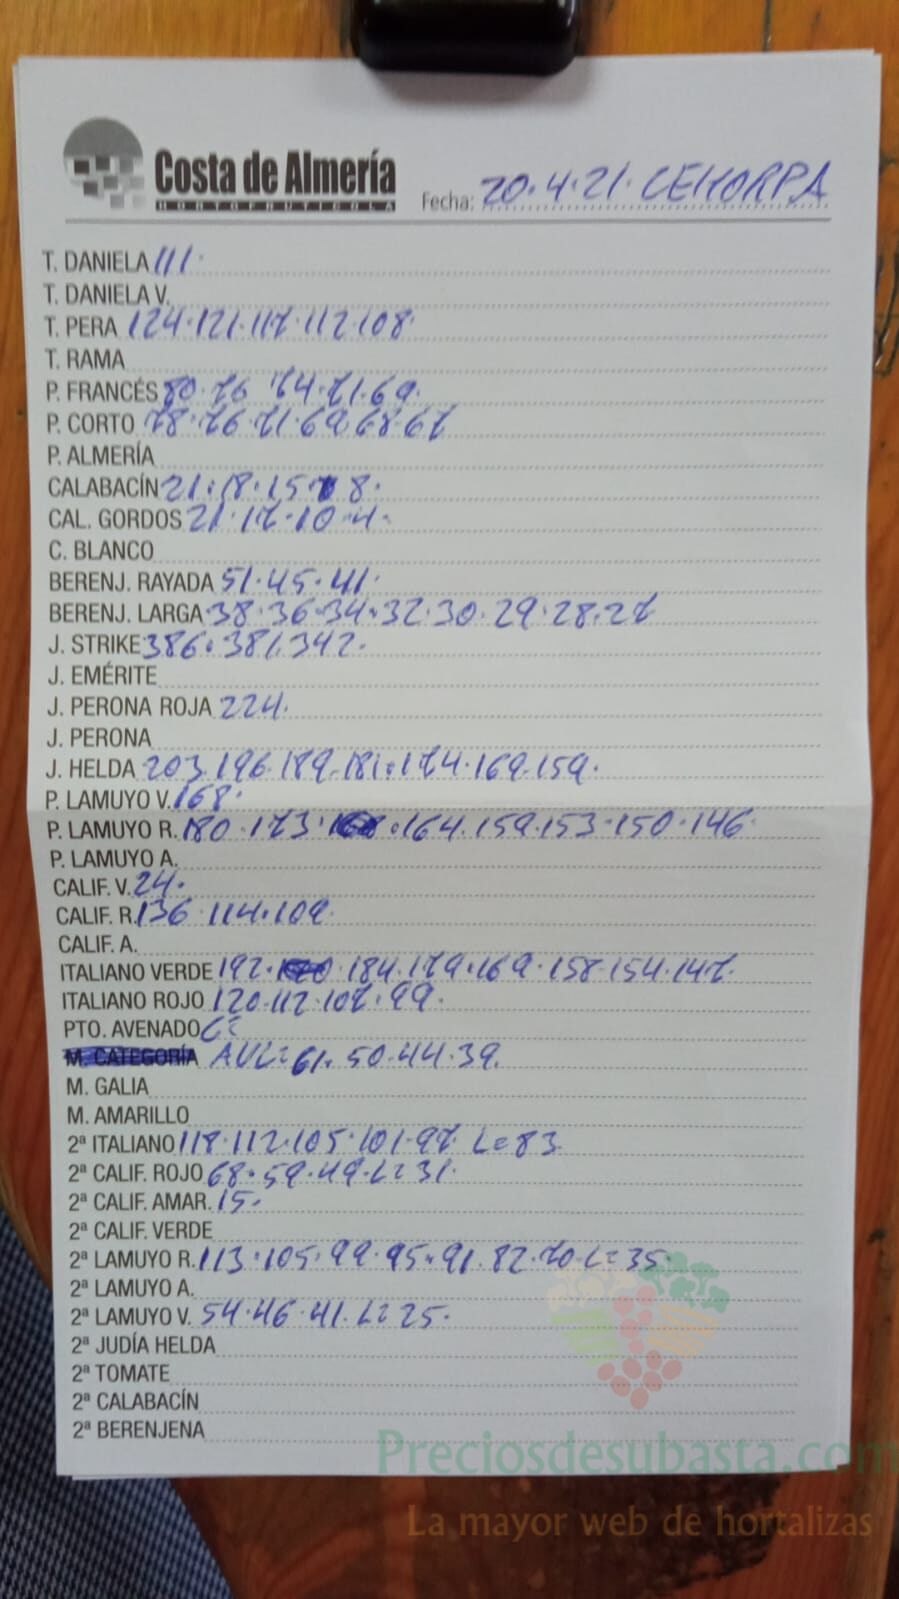 Costa de Almería
HORTOFRUTICOLA
Fecha: 20.4.21. CEHORPA
T. DANIELA 111.
T. DANIELA V.
T. PERA 124.121.117.112.108.
T. RAMA
P. FRANCÉS 80.76 74.71.69.
P. CORTO 78.76.71.69.68.67
P. ALMERÍA
CALABACÍN 21.18.15. 8.
CAL. GORDOS 21.17.10.4.
C. BLANCO
BERENJ. RAYADA 51.45.41.
BERENJ. LARGA 38.36.34.32.30.29.28.27
J. STRIKE 386.381.342.
J. EMÉRITE
J. PERONA ROJA 224.
J. PERONA
J. HELDA 203.196.189.181.174.169.159.
P. LAMUYO V. 168.
P. LAMUYO R. 180.173. .164.159.153.150.146.
P. LAMUYO A.
CALIF. V. 24.
CALIF. R. 136.114.109.
CALIF. A.
ITALIANO VERDE 192. .184.179.169.158.154.147.
ITALIANO ROJO 120.112.107.99.
PTO. AVENADO
M. CATEGORÍA AVL= 61.50.44.39.
M. GALIA
M. AMARILLO
2ª ITALIANO 118.112.105.101.97. L=83.
2ª CALIF. ROJO 68.59.49.L=31.
2ª CALIF. AMAR. 15.
2ª CALIF. VERDE
2ª LAMUYO R. 113.105.99.95.91.82.70.L=35.
2ª LAMUYO A.
2ª LAMUYO V. 54.46.41.L=25.
2ª JUDÍA HELDA
2ª TOMATE
2ª CALABACÍN
2ª BERENJENA
Preciosdesubasta.com
La mayor web de hortalizas